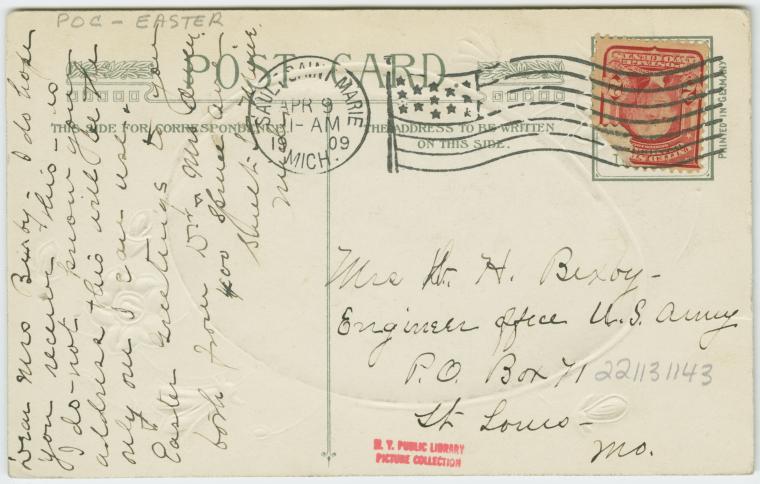 POC - EASTER
POST CARD
THIS SIDE FOR CORRESPONDENCE
THE ADDRESS TO BE WRITTEN
ON THIS SIDE.
SAULT SAINTE MARIE
APR 9
1-AM
1909
MICH.
PRINTED IN GERMANY
Dear Mrs Bixby - I do hope
you receive this - is
I do-not know your
address this will be the
only one I can use -
Easter greetings to you
both from Dr & Mrs
400 Spruce
Sault
Mrs H. Bixby -
Engineer office U.S. Army
P.O. Box 71
St Louis -
Mo.
221131143
N. Y. PUBLIC LIBRARY
PICTURE COLLECTION